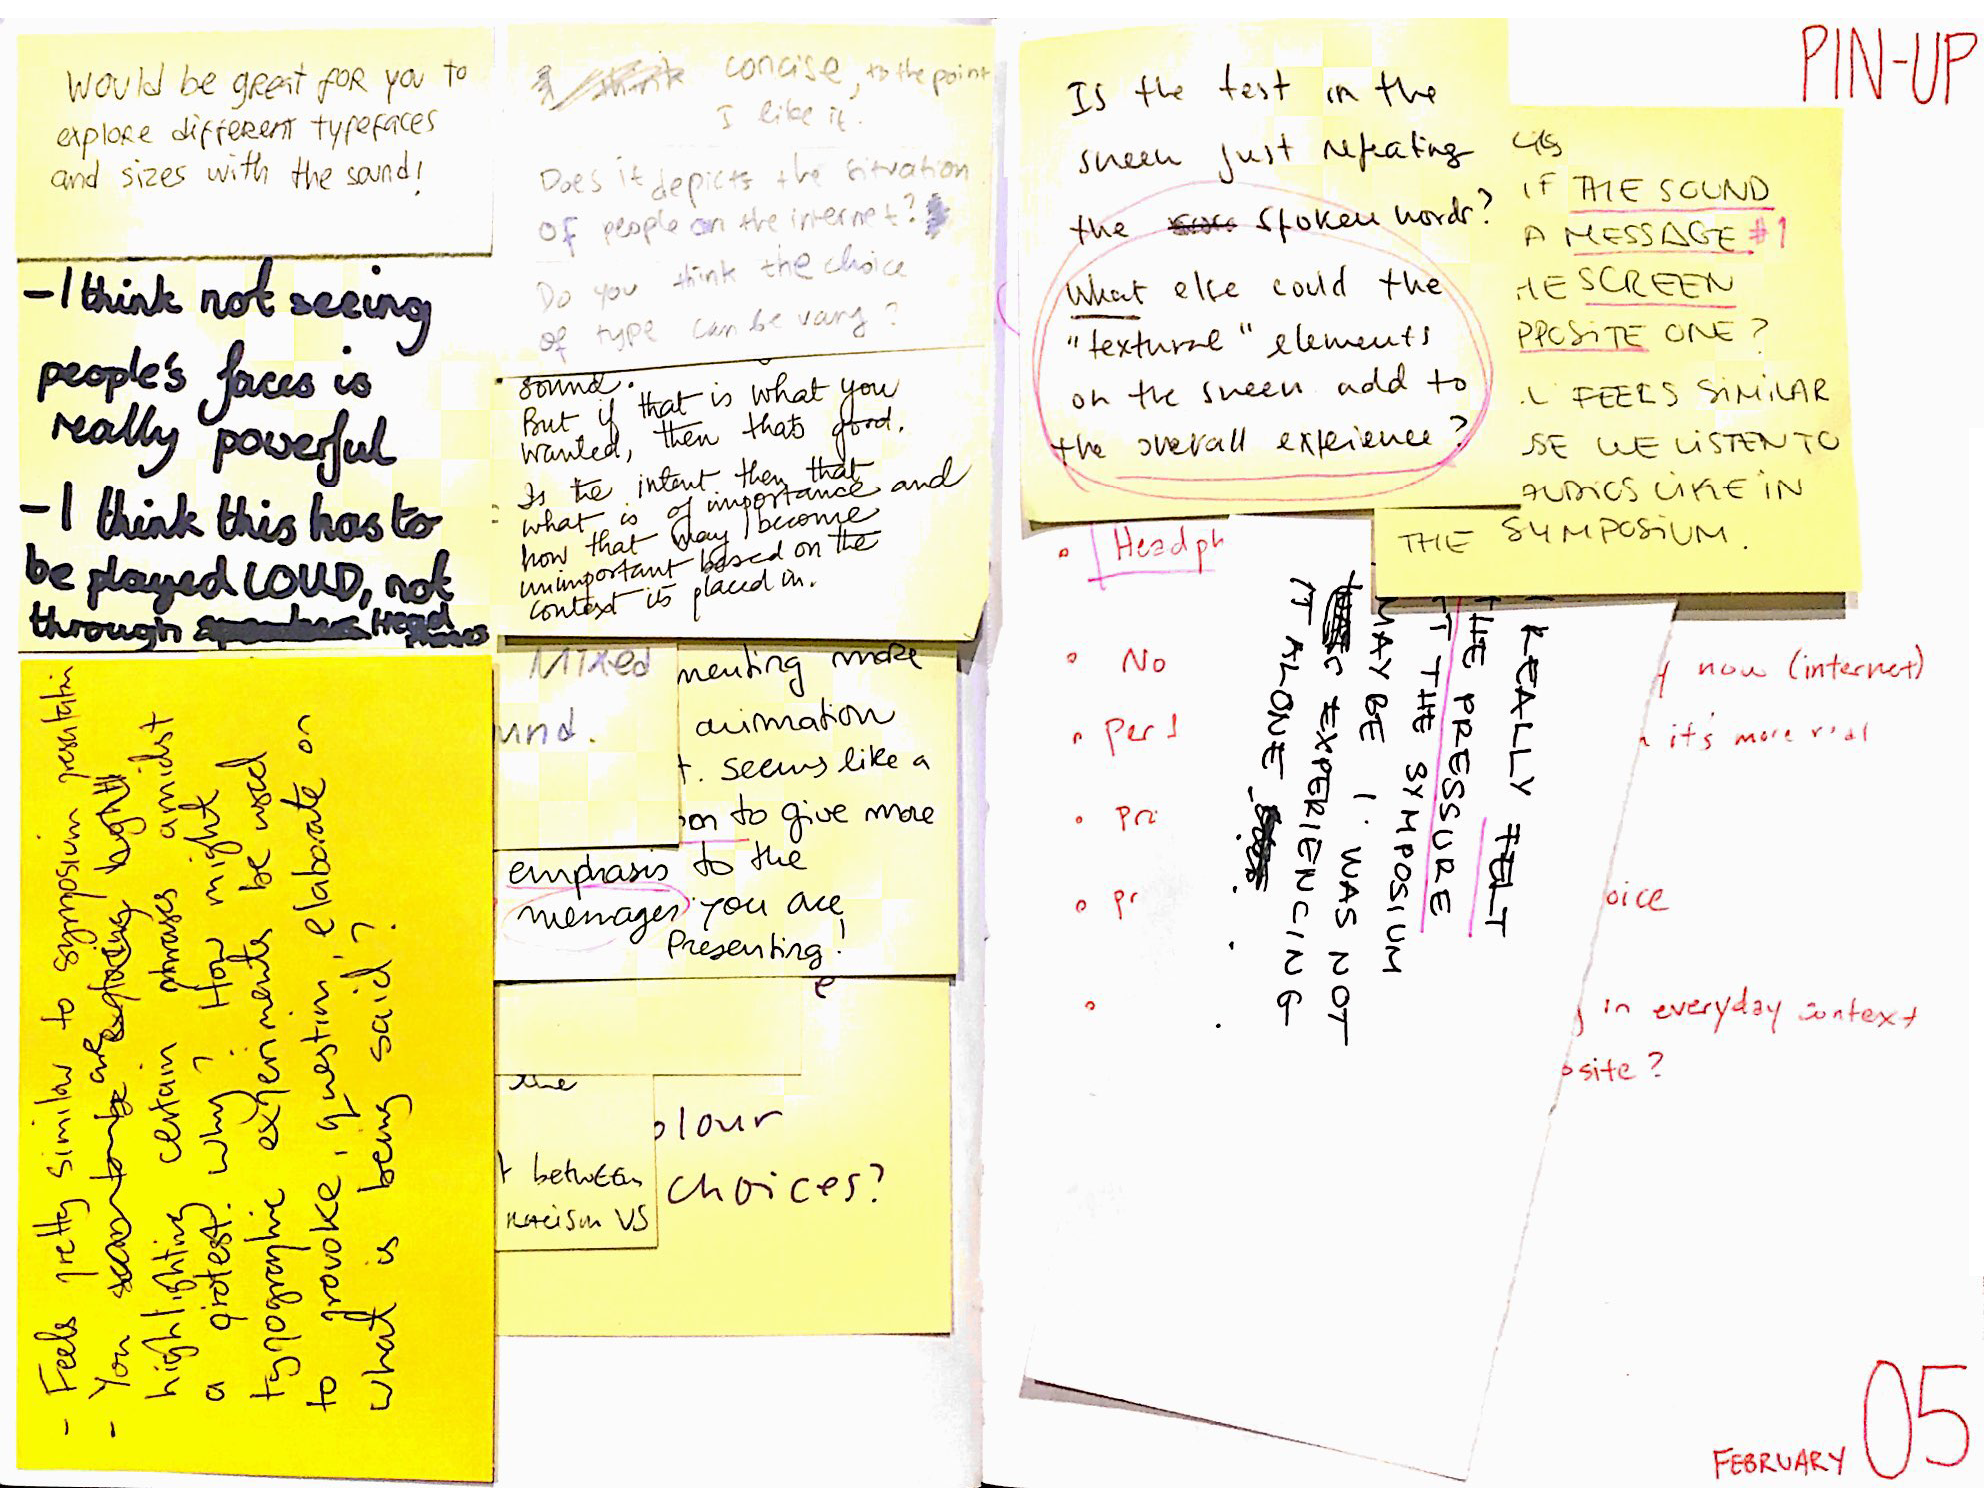 Would be great for you to
explore different typefaces
and sizes with the sound!
- I think not seeing
people's faces is
really powerful
- I think this has to
be played LOUD, not
through Head
phones
- Feels pretty similar to symposium presentatin
- You are exploring hight
highlighting certain phrases amidst
a protest. Why? How might
typographic experiments be used
to provoke, question, elaborate on
what is being said?
concise, to the point
I like it.
Does it depicts the sitvation
of people on the internet?
Do you think the choice
of type can be vary?
sound.
But if that is what you
wanted, then thats good.
Is the intent then that
what is of importance and
how that may become
unimportant based on the
context its placed in.
Mixed
und.
menting more
animation
t. seems like a
on to give more
emphasis to the
messages you are
Presenting!
e
the
t between
racism VS
olour
choices?
PIN-UP
Is the text in the
screen just repeating
the spoken words?
What else could the
"textural" elements
on the screen add to
the overall experience?
IF THE SOUND
A MESSAGE #1
HE SCREEN
PPOSITE ONE?
L FEELS SIMILAR
SE WE LISTEN TO
AUDIOS LIKE IN
THE SYMPOSIUM.
I REALLY FELT
THE PRESSURE
AT THE SYMPOSIUM
MAYBE I WAS NOT
EXPERIENCING
IT ALONE
• Headph
• No
y now (internet)
• Per
it's more real
• pri
• pr
oice
•
g in everyday context
osite?
FEBRUARY 05